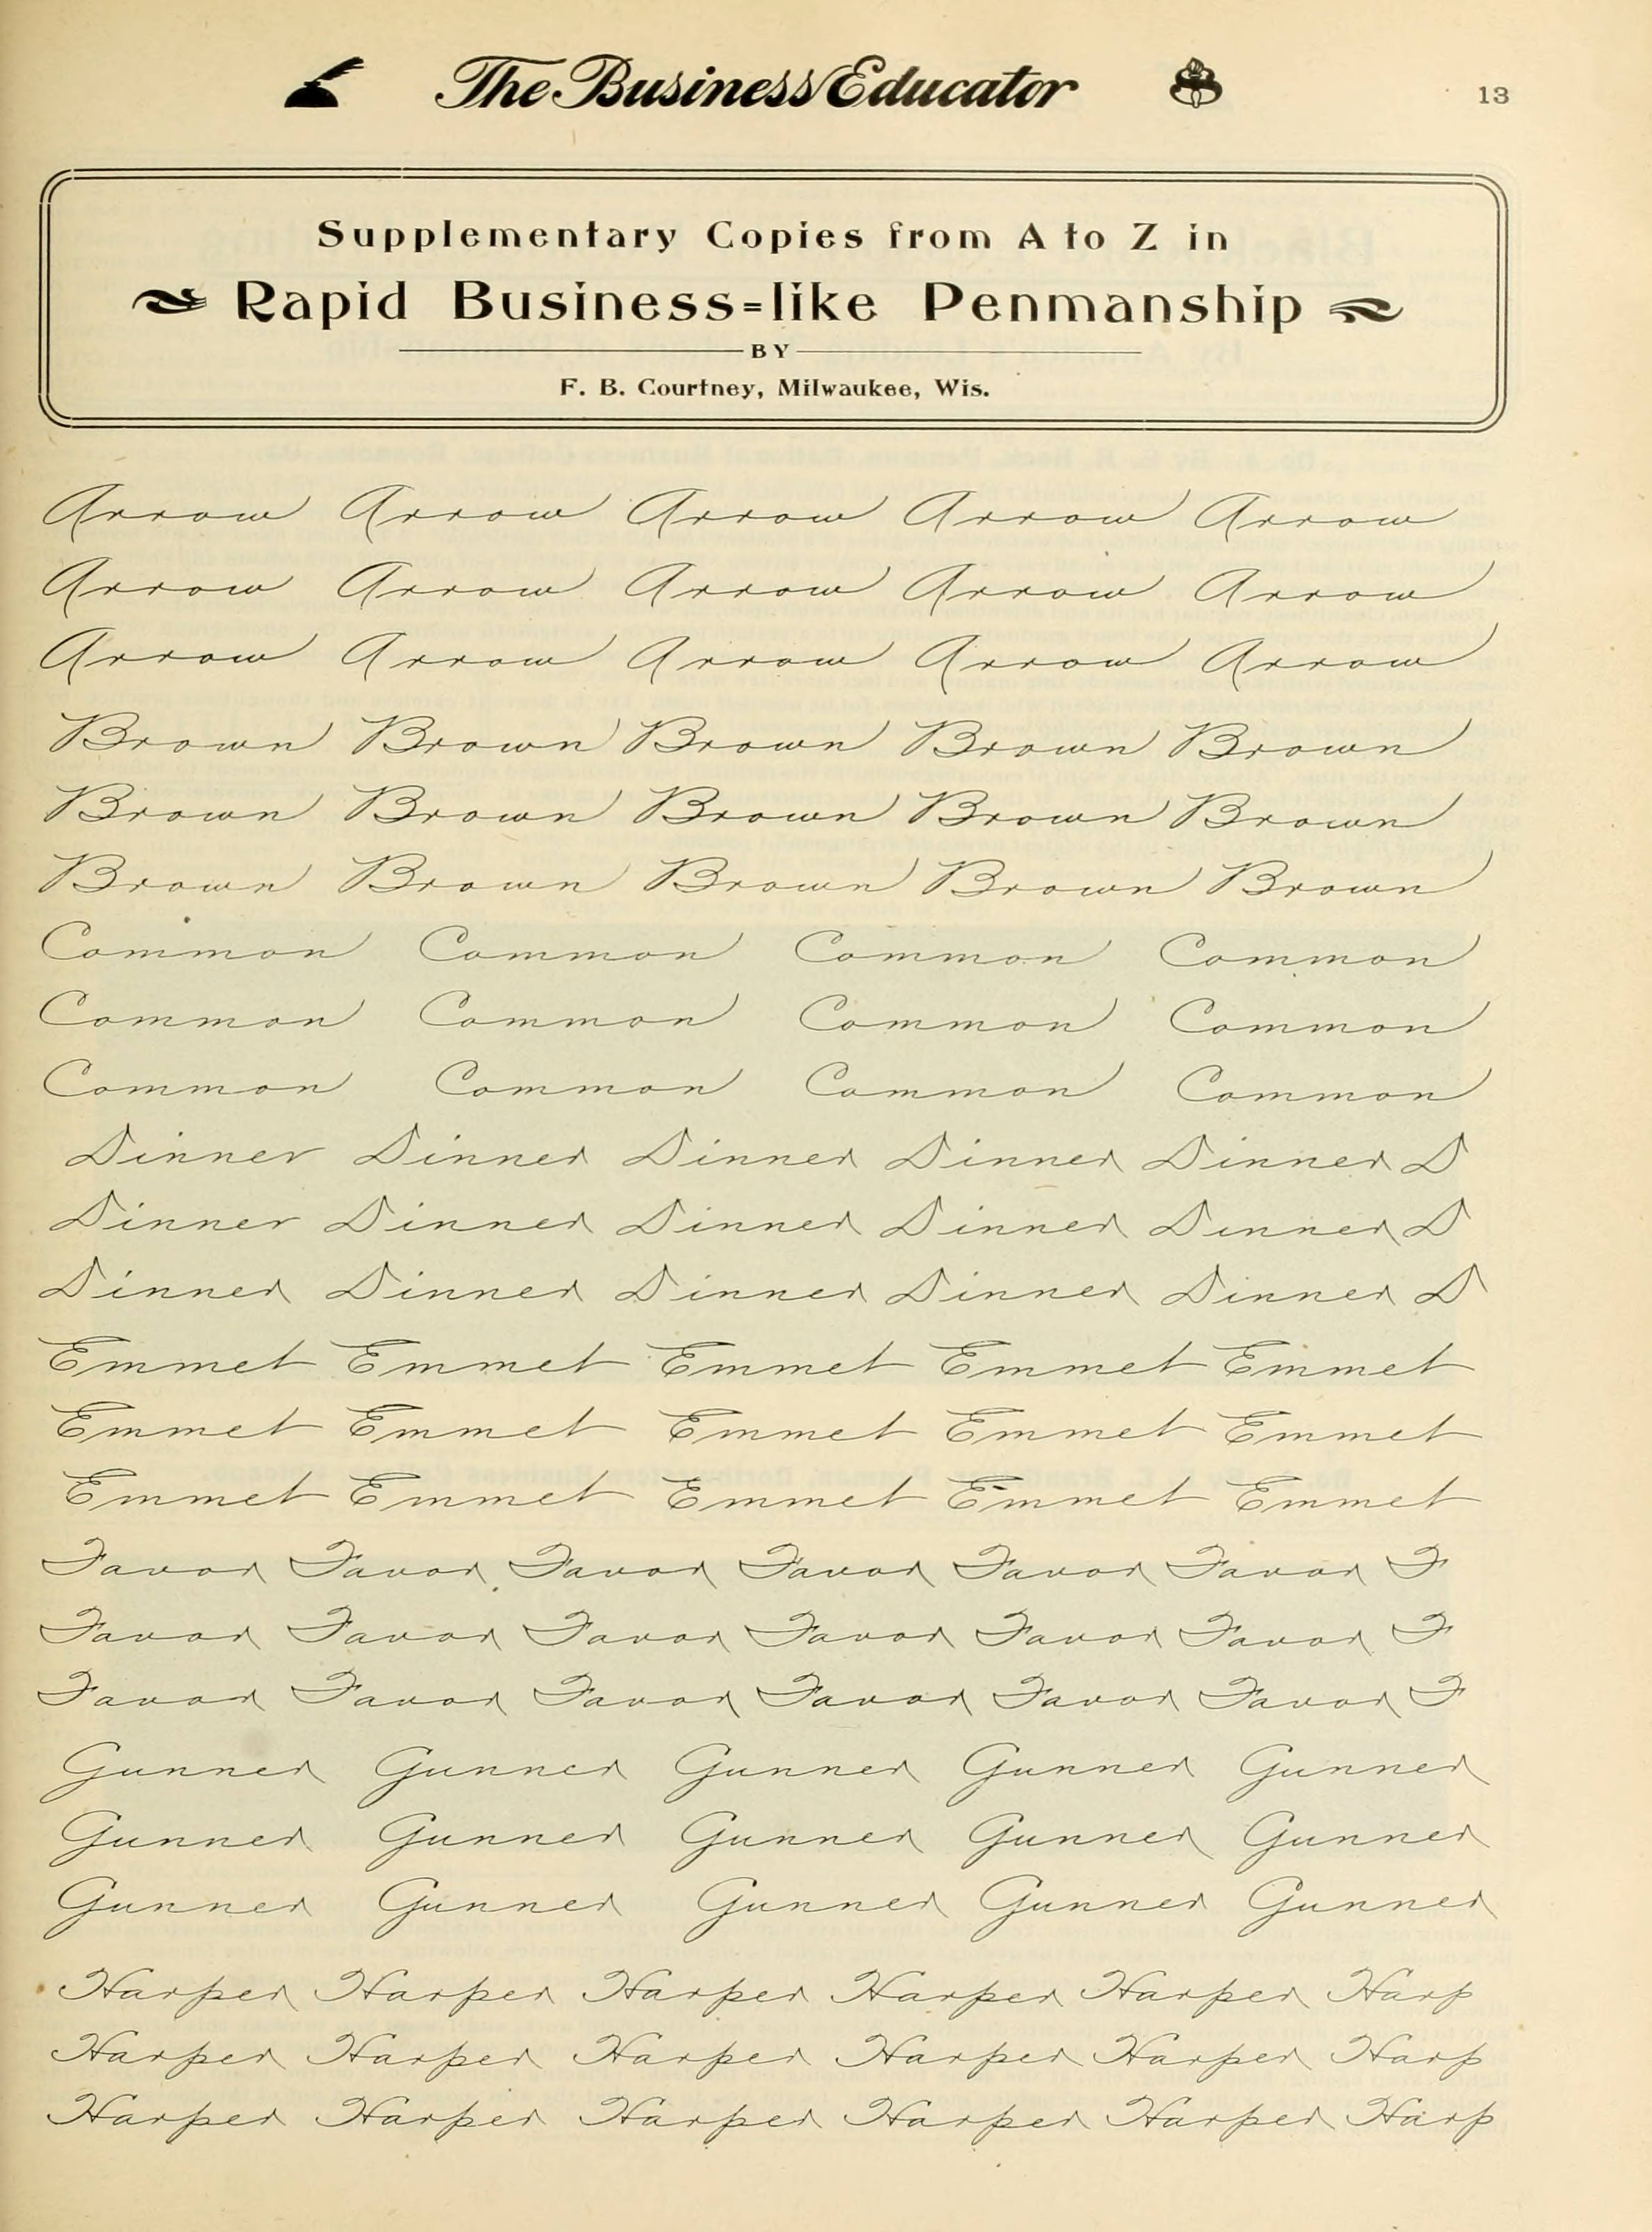 The Business Educator 13
Supplementary Copies from A to Z in
Rapid Business=like Penmanship
BY
F. B. Courtney, Milwaukee, Wis.
Arrow Arrow Arrow Arrow Arrow
Arrow Arrow Arrow Arrow Arrow
Arrow Arrow Arrow Arrow Arrow
Brown Brown Brown Brown Brown
Brown Brown Brown Brown Brown
Brown Brown Brown Brown Brown
Common Common Common Common
Common Common Common Common
Common Common Common Common
Dinner Dinner Dinner Dinner Dinner D
Dinner Dinner Dinner Dinner Dinner D
Dinner Dinner Dinner Dinner Dinner D
Emmet Emmet Emmet Emmet Emmet
Emmet Emmet Emmet Emmet Emmet
Emmet Emmet Emmet Emmet Emmet
Favor Favor Favor Favor Favor Favor F
Favor Favor Favor Favor Favor Favor F
Favor Favor Favor Favor Favor Favor F
Gunner Gunner Gunner Gunner Gunner
Gunner Gunner Gunner Gunner Gunner
Gunner Gunner Gunner Gunner Gunner
Harper Harper Harper Harper Harper Harp
Harper Harper Harper Harper Harper Harp
Harper Harper Harper Harper Harper Harp